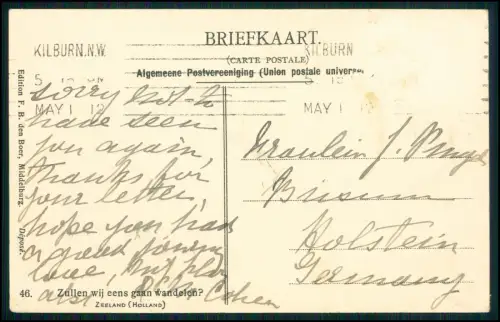 BRIEFKAART.
(CARTE POSTALE)
Algemeene Postvereeniging (Union postale univers
KILBURN.N.W.
MAY 1 12
KILBURN
MAY 1 12
Edition F. B. den Boer, Middelburg.
Déposé.
Sorry not to
have seen
you again,
Thanks for
your letter,
hope you had
a good journey
love,
Cohen
Fraulein J.
Büsum
Holstein
Germany
46. Zullen wij eens gaan wandelen?
ZEELAND (HOLLAND)